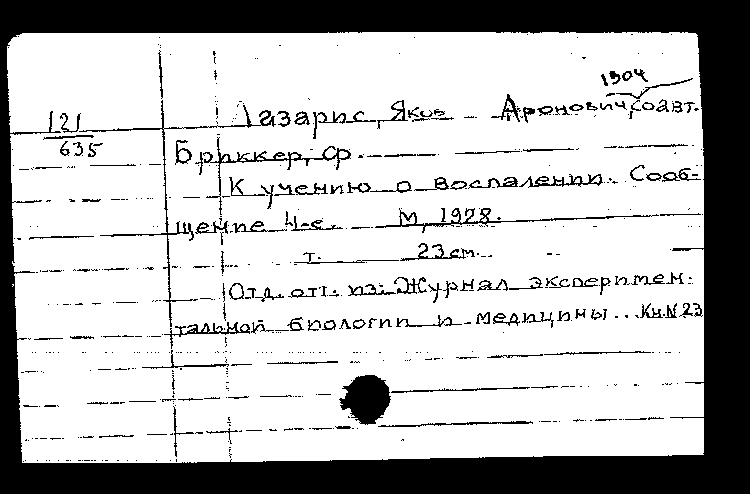 1904
121
635
Лазарис, Яков Аронович, соавт.
Бриккер, Ф.
К учению о воспалении. Сооб-
щение 4-е. М, 1928.
т. 23 см.
Отд. отт. из: Журнал эксперимен-
тальной биологии и медицины.. Кн. N 23